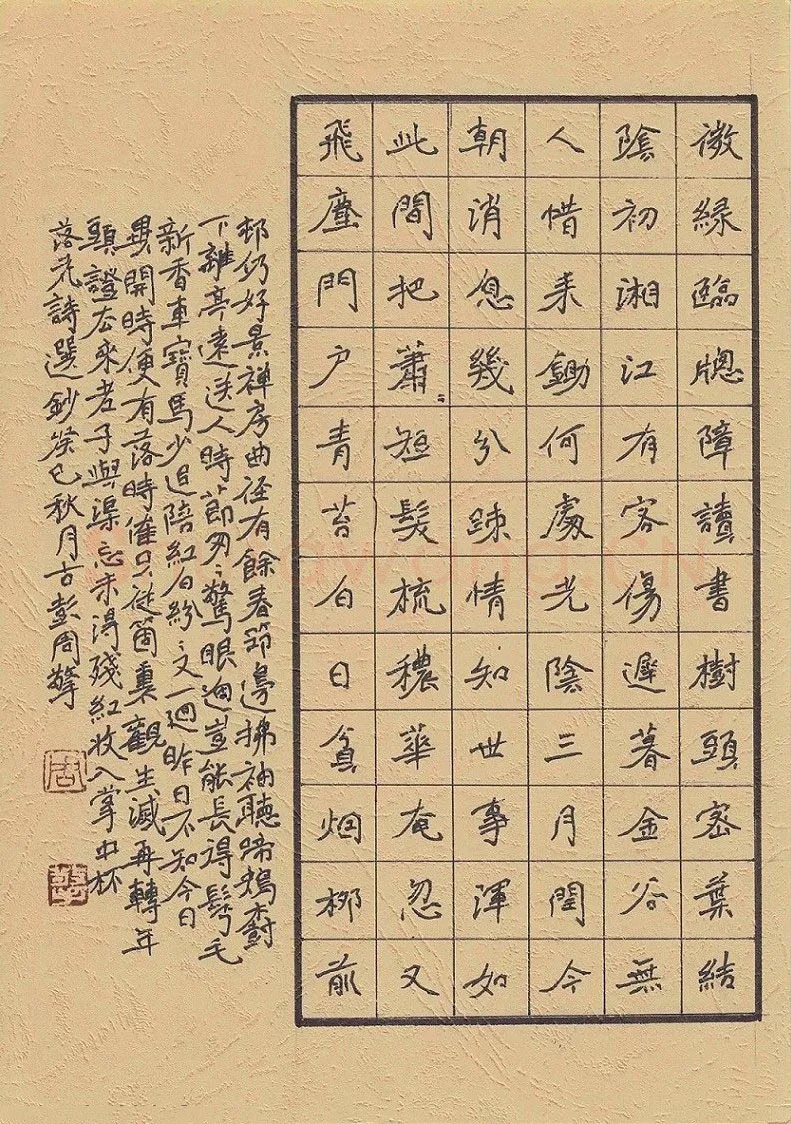 微緑臨牕障讀書樹頭密葉結
陰初湘江有客傷遲暮金谷無
人惜未鋤何處光陰三月閏今
朝消息幾分踈情知世事渾如
此間把蕭〻短髮梳穠華奄忽又
飛塵門户青苔白日貧烟柳前
邨仍好景禅房曲径有餘春筇邊拂袖聽啼鴂樹
下離亭遠送人時節匆〻驚眼過豈能長得髩毛
新香車寶馬少追陪紅白紛〻又一迴昨日不知今日
異開時便有落時催只従箇裏觀生滅再轉年
頭證去來老子與渠忘未得殘紅收入掌中杯
落花詩選鈔癸巳秋月古彭周擎
周